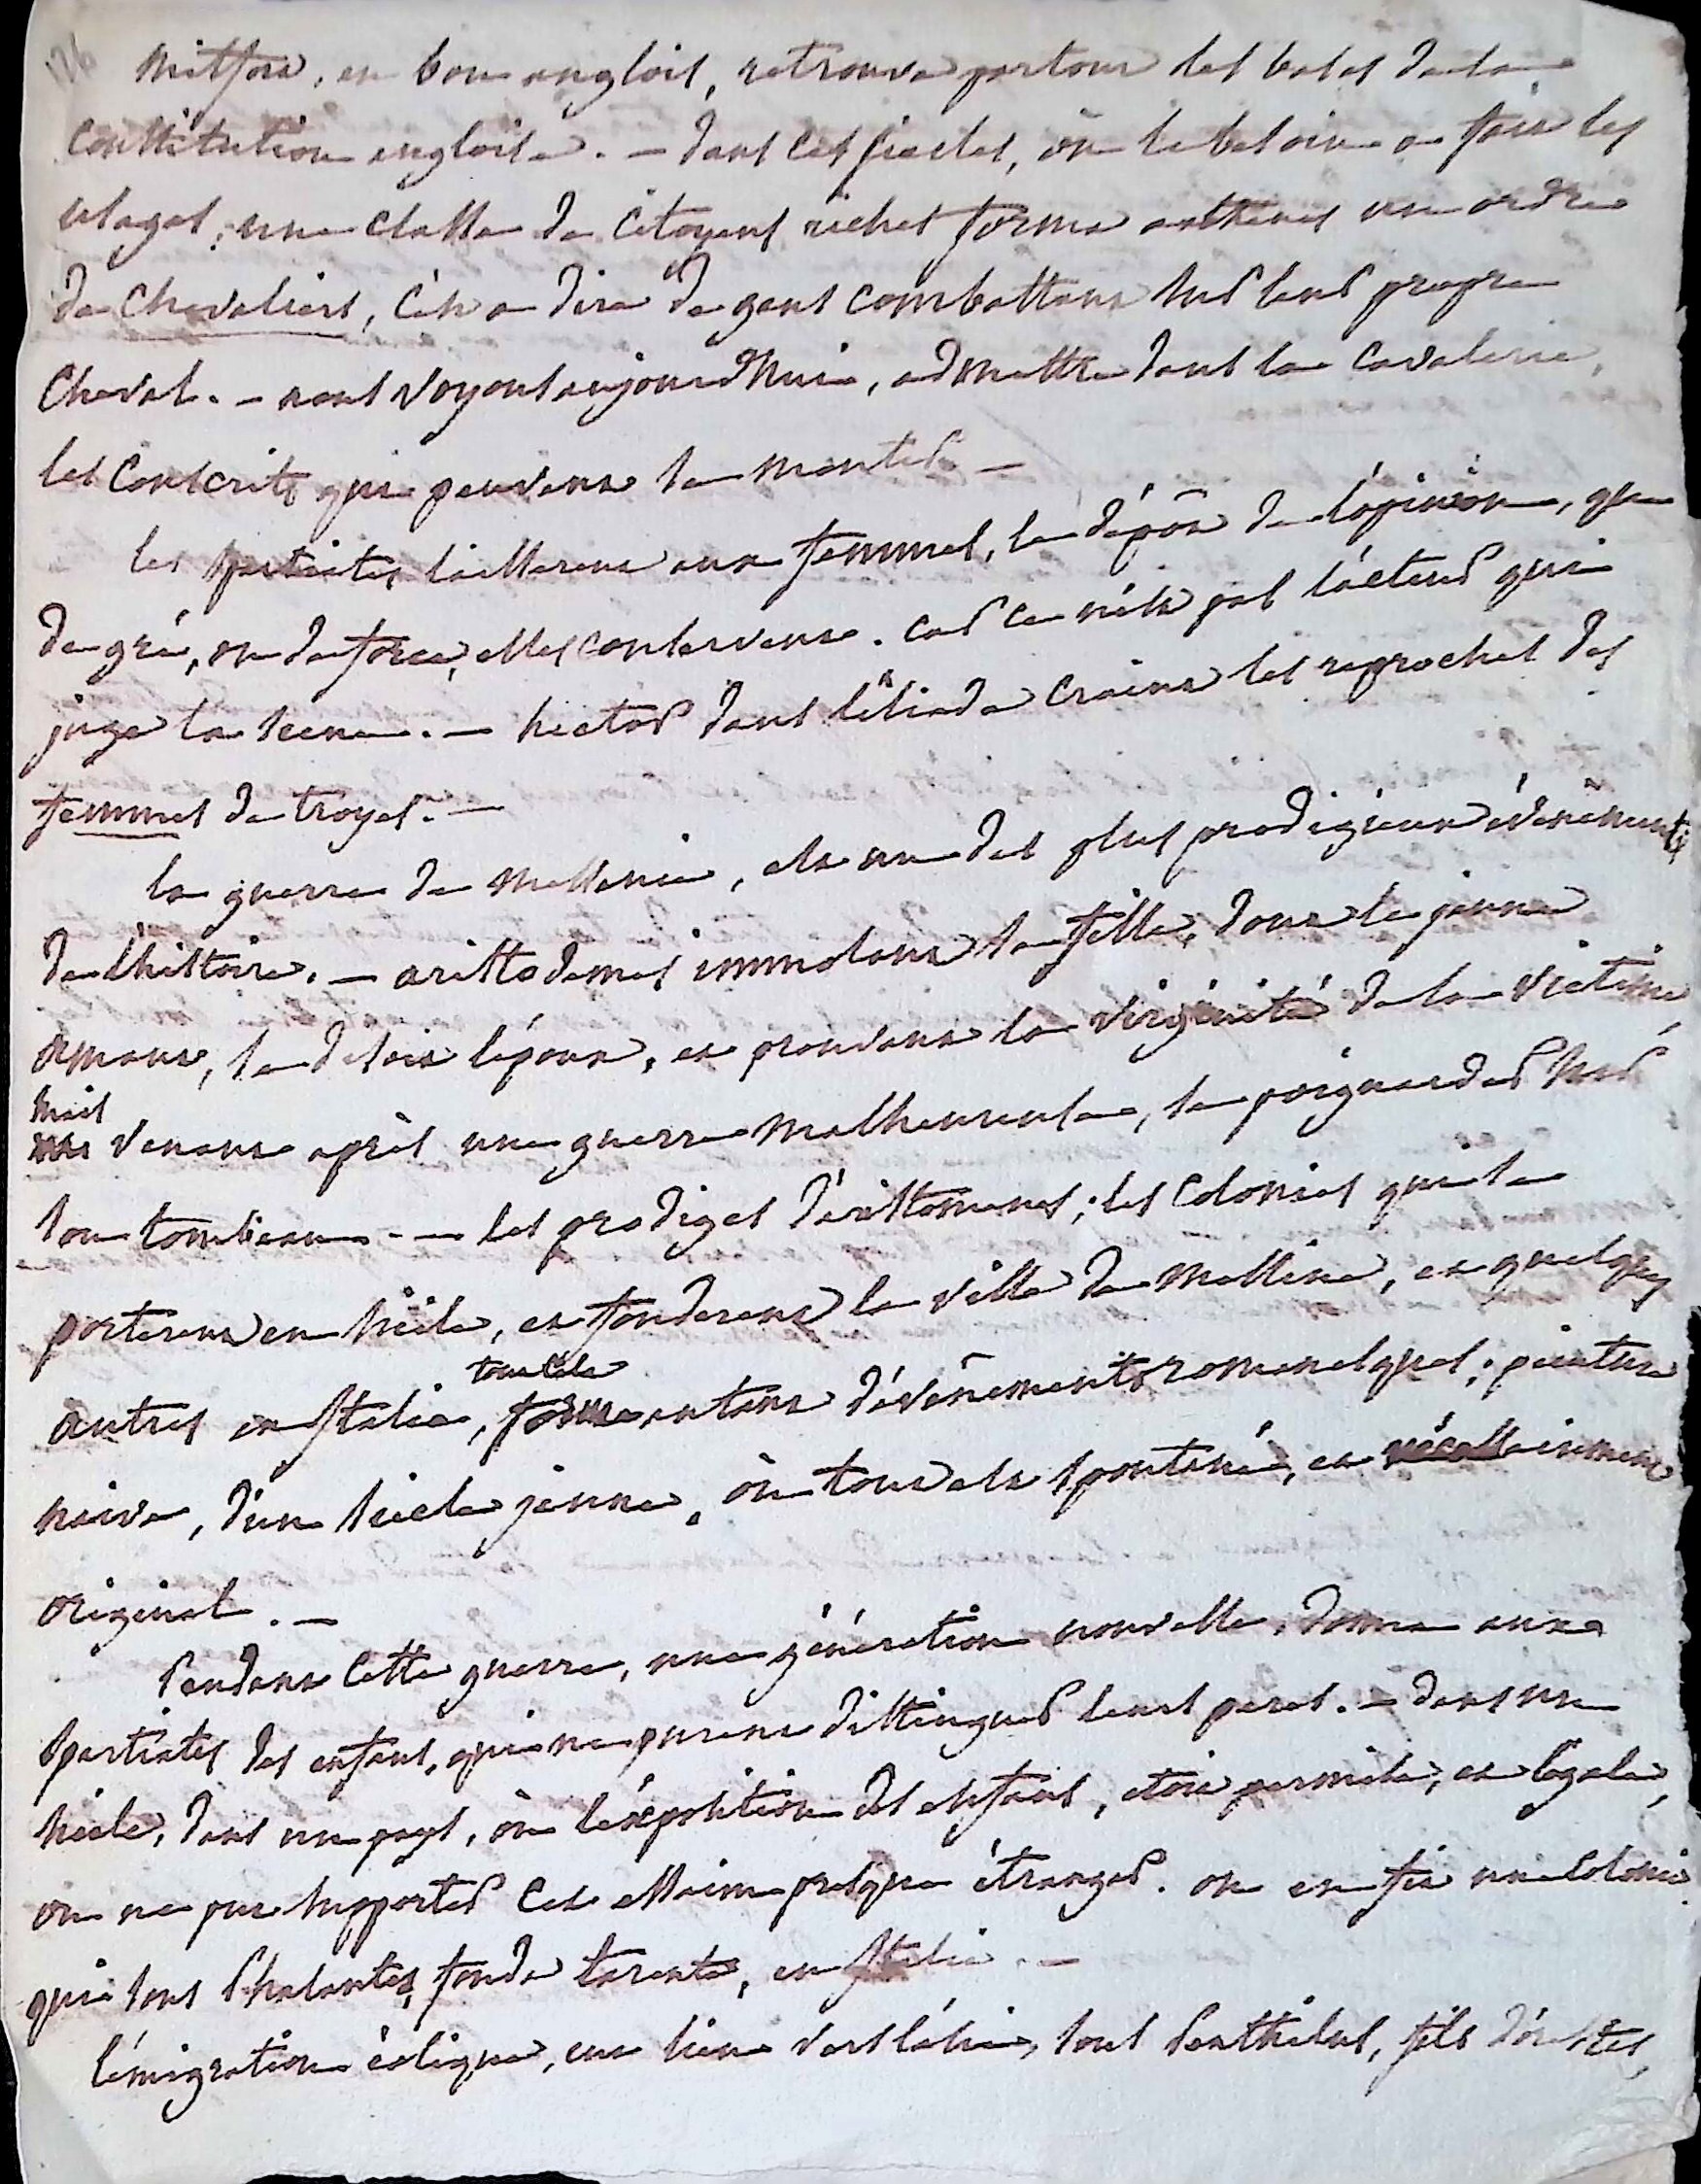 126
Mitford, en bon anglois, retrouve partout les bases de la
constitution angloise. — dans ces siecles, où le besoin a fait les
usages, une classe de citoyens riches forma a athenes un ordre
de chevaliers, c'est a dire de gens combattans sur leur propre
cheval. — nous voyons aujourd'hui, admettre dans la cavalerie,
les conscrits qui peuvent se monter —
les spartiates laisserent aux femmes, le dépôt de l'opinion, que
de gré, ou de force, elles conservent. car ce n'est pas l'acteur qui
juge la scene. — hector dans l'iliade craint les reproches des
femmes de troyes. —
la guerre de messenie, est un des plus prodigieux évênements
de l'histoire. — aristodemes immolant sa fille, dont le jeune
amant, se disoit l'époux, et prouvant la virginité de la victime,
mais
venant après une guerre malheureuse, se poignarder sur
son tombeau. — les prodiges d'aristomenes; les colonies qui se
porterent en sicile, et fonderent la ville de messine, et quelques
tout cela
autres en italie, forme autant d'évênements romanesques; peinture
naive, d'un siecle jeune, où tout est spontané, et nécessairement
original. —
Pendant cette guerre, une génération nouvelle, donna aux
spartiates des enfans, qui ne purent distinguer leurs peres. — dans un
siecle, dans un pays, où l'exposition des enfans, etoit permise, et légale,
on ne put supporter cet essaim presque étranger. on en fit une colonie
qui sous Phalantes, fonda tarente, en italie. —
l'émigration éolique, eut lieu vers l'asie, sous Penthilus, fils d'orestes,